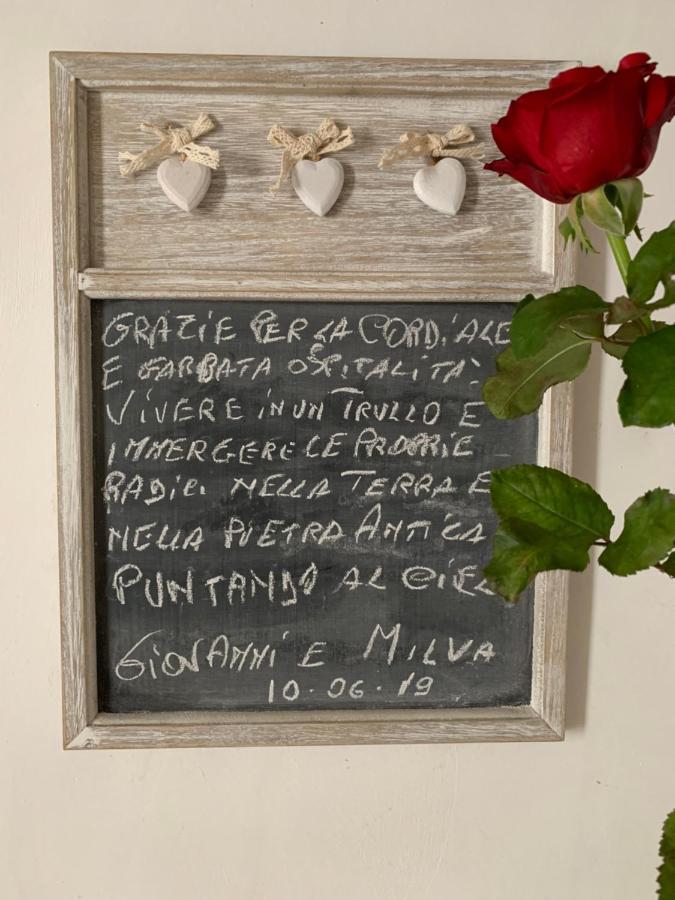 GRAZIE PER LA CORDIALE
E GARBATA OSPITALITA'
VIVERE IN UN TRULLO E'
IMMERGERE LE PROPRIE
RADICI NELLA TERRA E
NELLA PIETRA ANTICA
PUNTANDO AL CIEL
GIOVANNI E MILVA
10.06.19